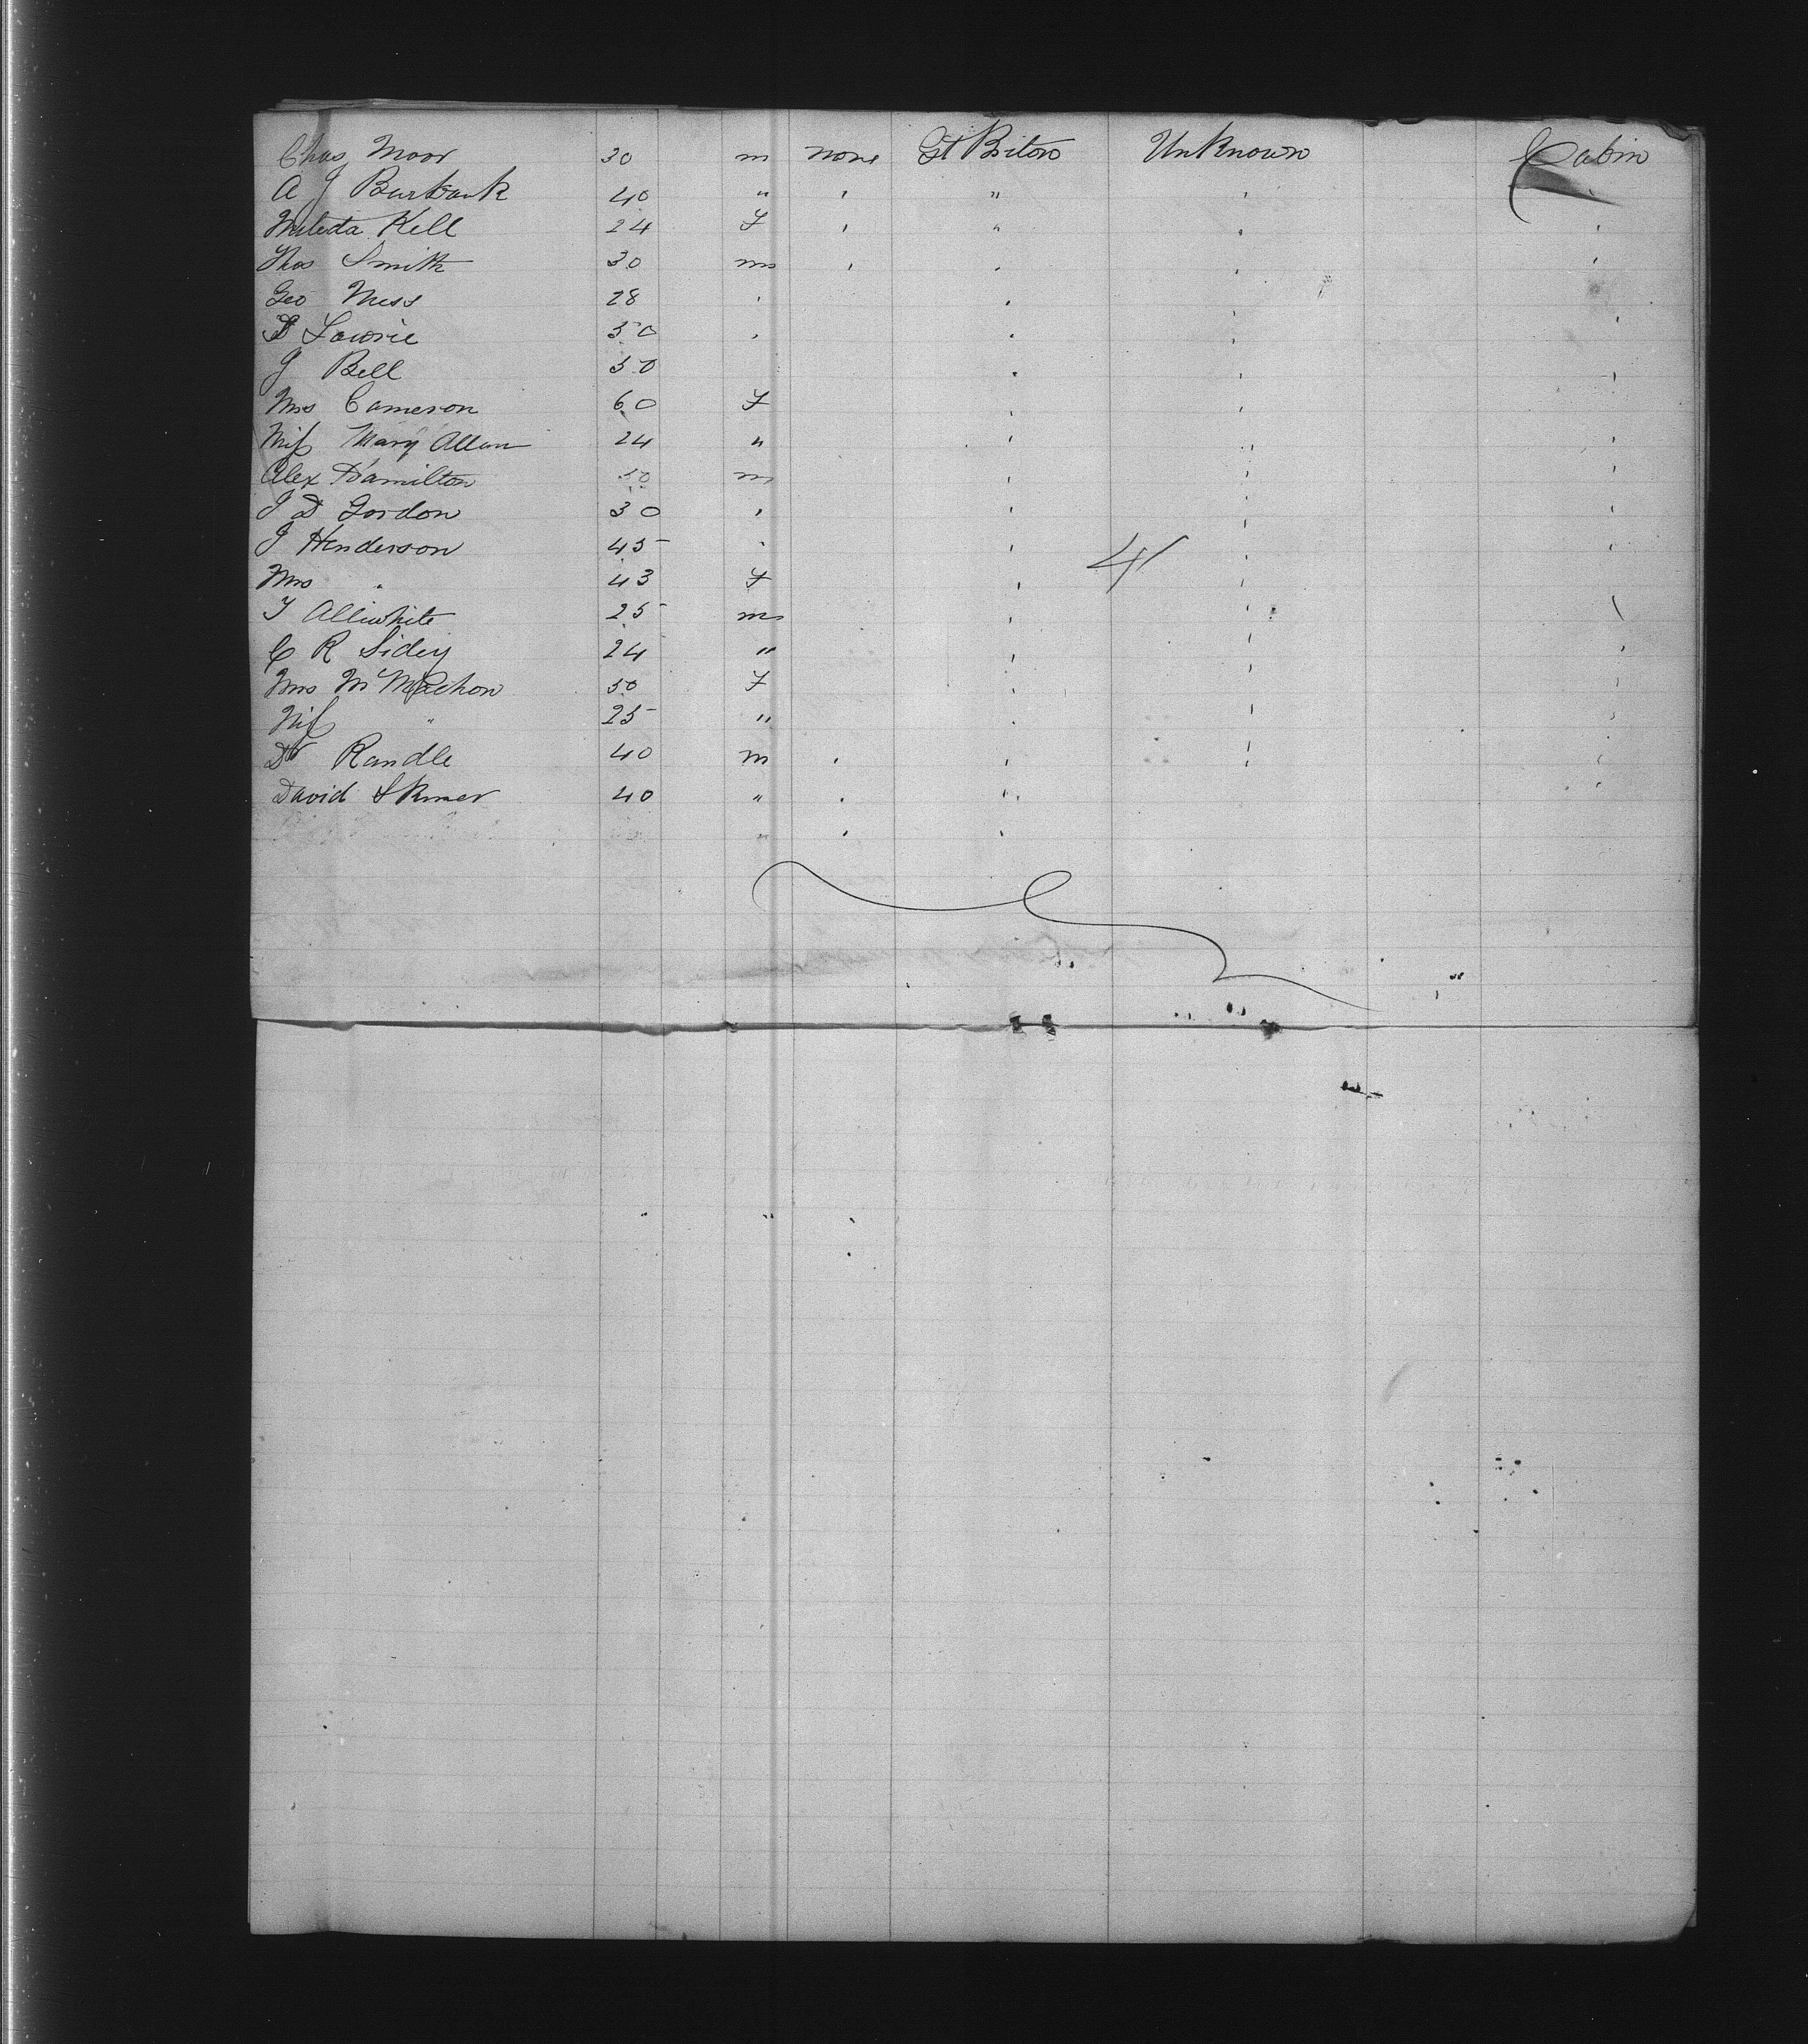 Chas Moor 30 m none Gt Briton Unknown Cabin
A J Burbank 40 " ' " '
Mileta Kell 24 F ' " ' '
Thos Smith 30 m ' ' ' '
Geo Mess 28 ' ' ' '
D Lowrie 50 ' ' '
J Bell 50 ' ' '
Mrs Cameron 60 F ' '
Miss Mary Allan 24 " ' ' '
Alex Hamilton 50 m ' ' '
J D Gordon 30 ' ' ' '
J Henderson 45 ' ' ' '
41
Mrs " 43 F ' '
T Alliwhite 25 m ' ' '
C R Sidey 24 " ' ' '
Mrs Mc Machon 50 F ' ' '
Miss " 25 " ' ' '
Dr Randle 40 m ' ' ' '
David Skinner 40 " ' ' '
" ' '